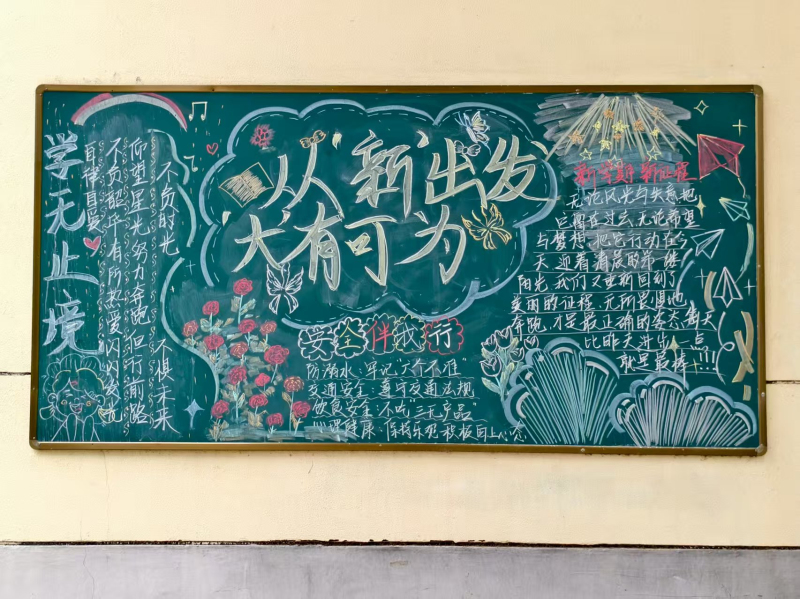 学无止境
不负时光 不惧未来
仰望星光努力奔跑但行前路
不负韶华有所热爱闪闪发光
自律自爱
从“新”出发
“大”有可为
安全伴我行
防溺水：牢记“六个不准”
交通安全：遵守交通法规
饮食安全：不吃“三无”产品
心理健康：保持乐观积极向上心态
新学期 新征程
无论风光与失意把
它留在过去无论希望
与梦想，把它行动在今
天 迎着清晨的第一缕
阳光，我们又重新回到了
美丽的征程，无所畏惧地
奔跑，才是最正确的姿态，每天
比昨天进步一点
就是最棒！！！